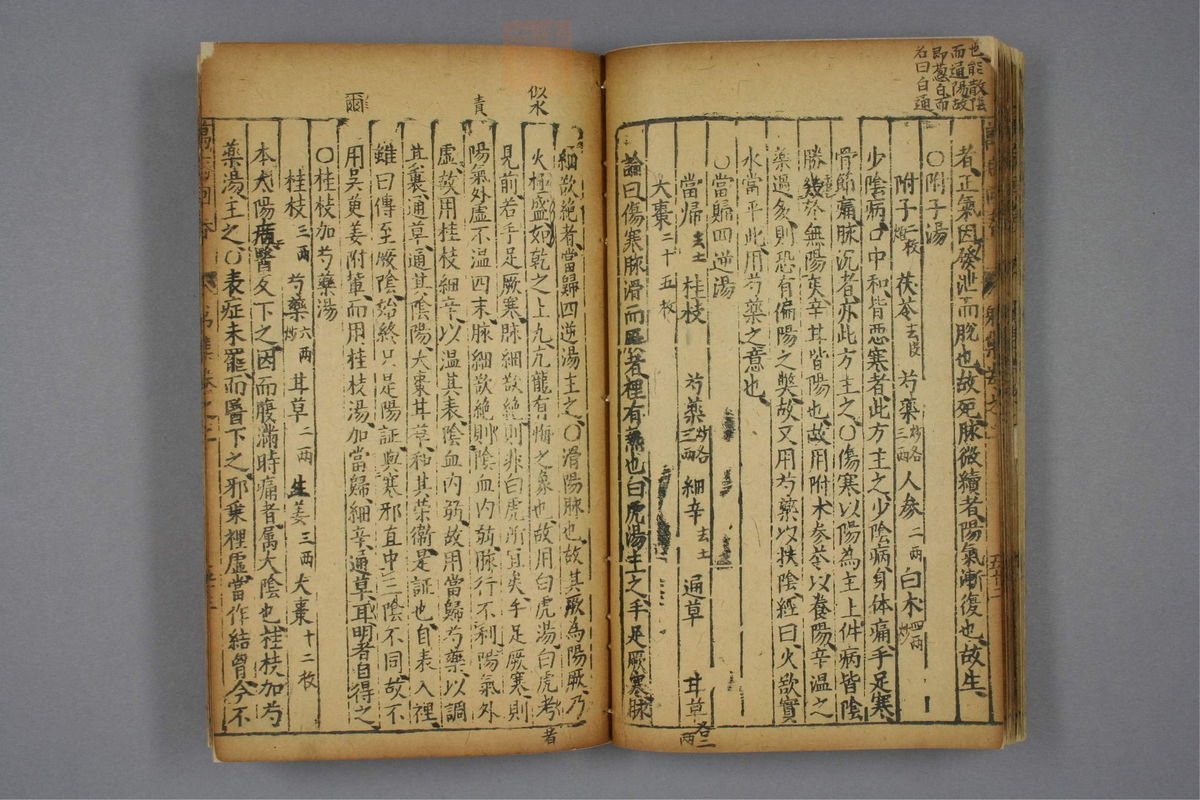 也能散陰
而通陽故
即葱白而
名曰白通
者正氣因發泄而脫也故死脉微續者陽氣漸復也故生
〇附子湯
附子二枚炮 茯苓去皮 芍藥炒各三兩 人參二兩 白朮四兩炒
少陰病口中和背惡寒者此方主之少陰病身体痛手足寒
骨節痛脉沉者亦此方主之〇傷寒以陽為主上件病皆陰
勝幾於無陽矣辛甘皆陽也故用附朮參苓以養陽辛溫之
藥過多則恐有偏陽之獘故又用芍藥以扶陰經曰火欲實
水當平此用芍藥之意也
〇當歸四逆湯
當帰去土 桂枝 芍藥炒各三兩 細辛去土 通草 甘草各二兩
大棗二十五枚
論曰傷寒脉滑而厥者裡有熱也白虎湯主之手足厥寒脉
似水
責
爾
細欲絶者當歸四逆湯主之〇滑陽脉也故其厥為陽厥乃
火極盛如乾之上九亢龍有悔之象也故用白虎湯白虎考
見前若手足厥寒脉細欲絶則非白虎所宜矣手足厥寒則
陽氣外虛不溫四末脉細欲絶則陰血内弱脉行不利陽氣外
虛故用桂枝細辛以溫其表陰血内弱故用當歸芍藥以調
其裏通草通其陰陽大棗甘草和其荣衛是証也自表入裡
雖曰傳至厥陰始終只是陽証與寒邪直中三陰不同故不
用吳萸姜附軰而用桂枝湯加當歸細辛通草耳明者自得之
〇桂枝加芍藥湯
桂枝三兩 芍藥六兩炒 甘草二兩 生姜三兩 大棗十二枚
本太陽病醫反下之因而腹滿時痛者属太陰也桂枝加芍
藥湯主之〇表症未罷而醫下之邪乗裡虛當作結胷今不
者